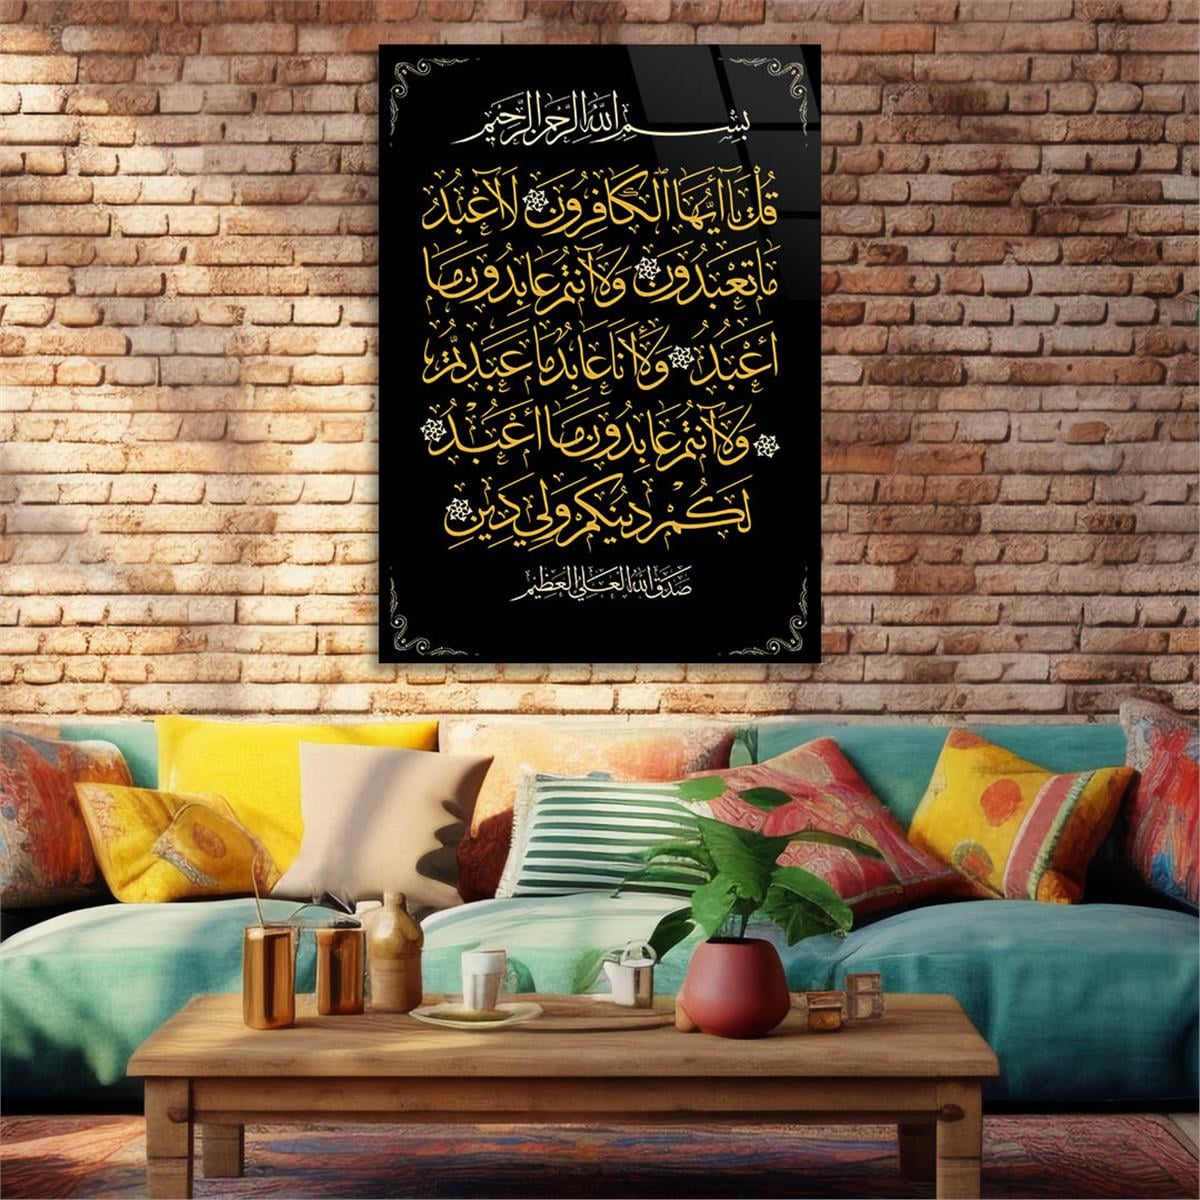 بِسْمِ اللّٰهِ الرَّحْمٰنِ الرَّحِيْمِ
قُلْ يَآ أَيُّهَا الْكَافِرُونَ لَآ أَعْبُدُ
مَا تَعْبُدُونَ وَلَآ أَنْتُمْ عَابِدُونَ مَا
أَعْبُدُ وَلَآ أَنَا عَابِدُ مَا عَبَدْتُمْ
وَلَآ أَنْتُمْ عَابِدُونَ مَا أَعْبُدُ
لَكُمْ دِينُكُمْ وَلِيَ دِينِ
صَدَقَ اللّٰهُ الْعَلِيُّ الْعَظِيْمُ